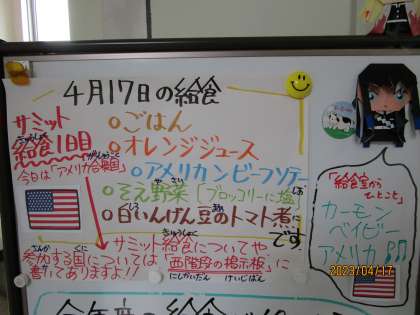 4月17日の給食
サミット
給食1日目
今日は「アメリカ合衆国」
○ごはん
○オレンジジュース
○アメリカンビーフソテー
○そえ野菜[ブロッコリーに塩]
○白いんげん豆のトマト煮
です。
サミット給食についてや
参加する国については「西階段の掲示板」に
書いてありますよ!!
「給食室から
ひとこと」
カーモン
ベイビー
アメリカ♫
2023/04/17